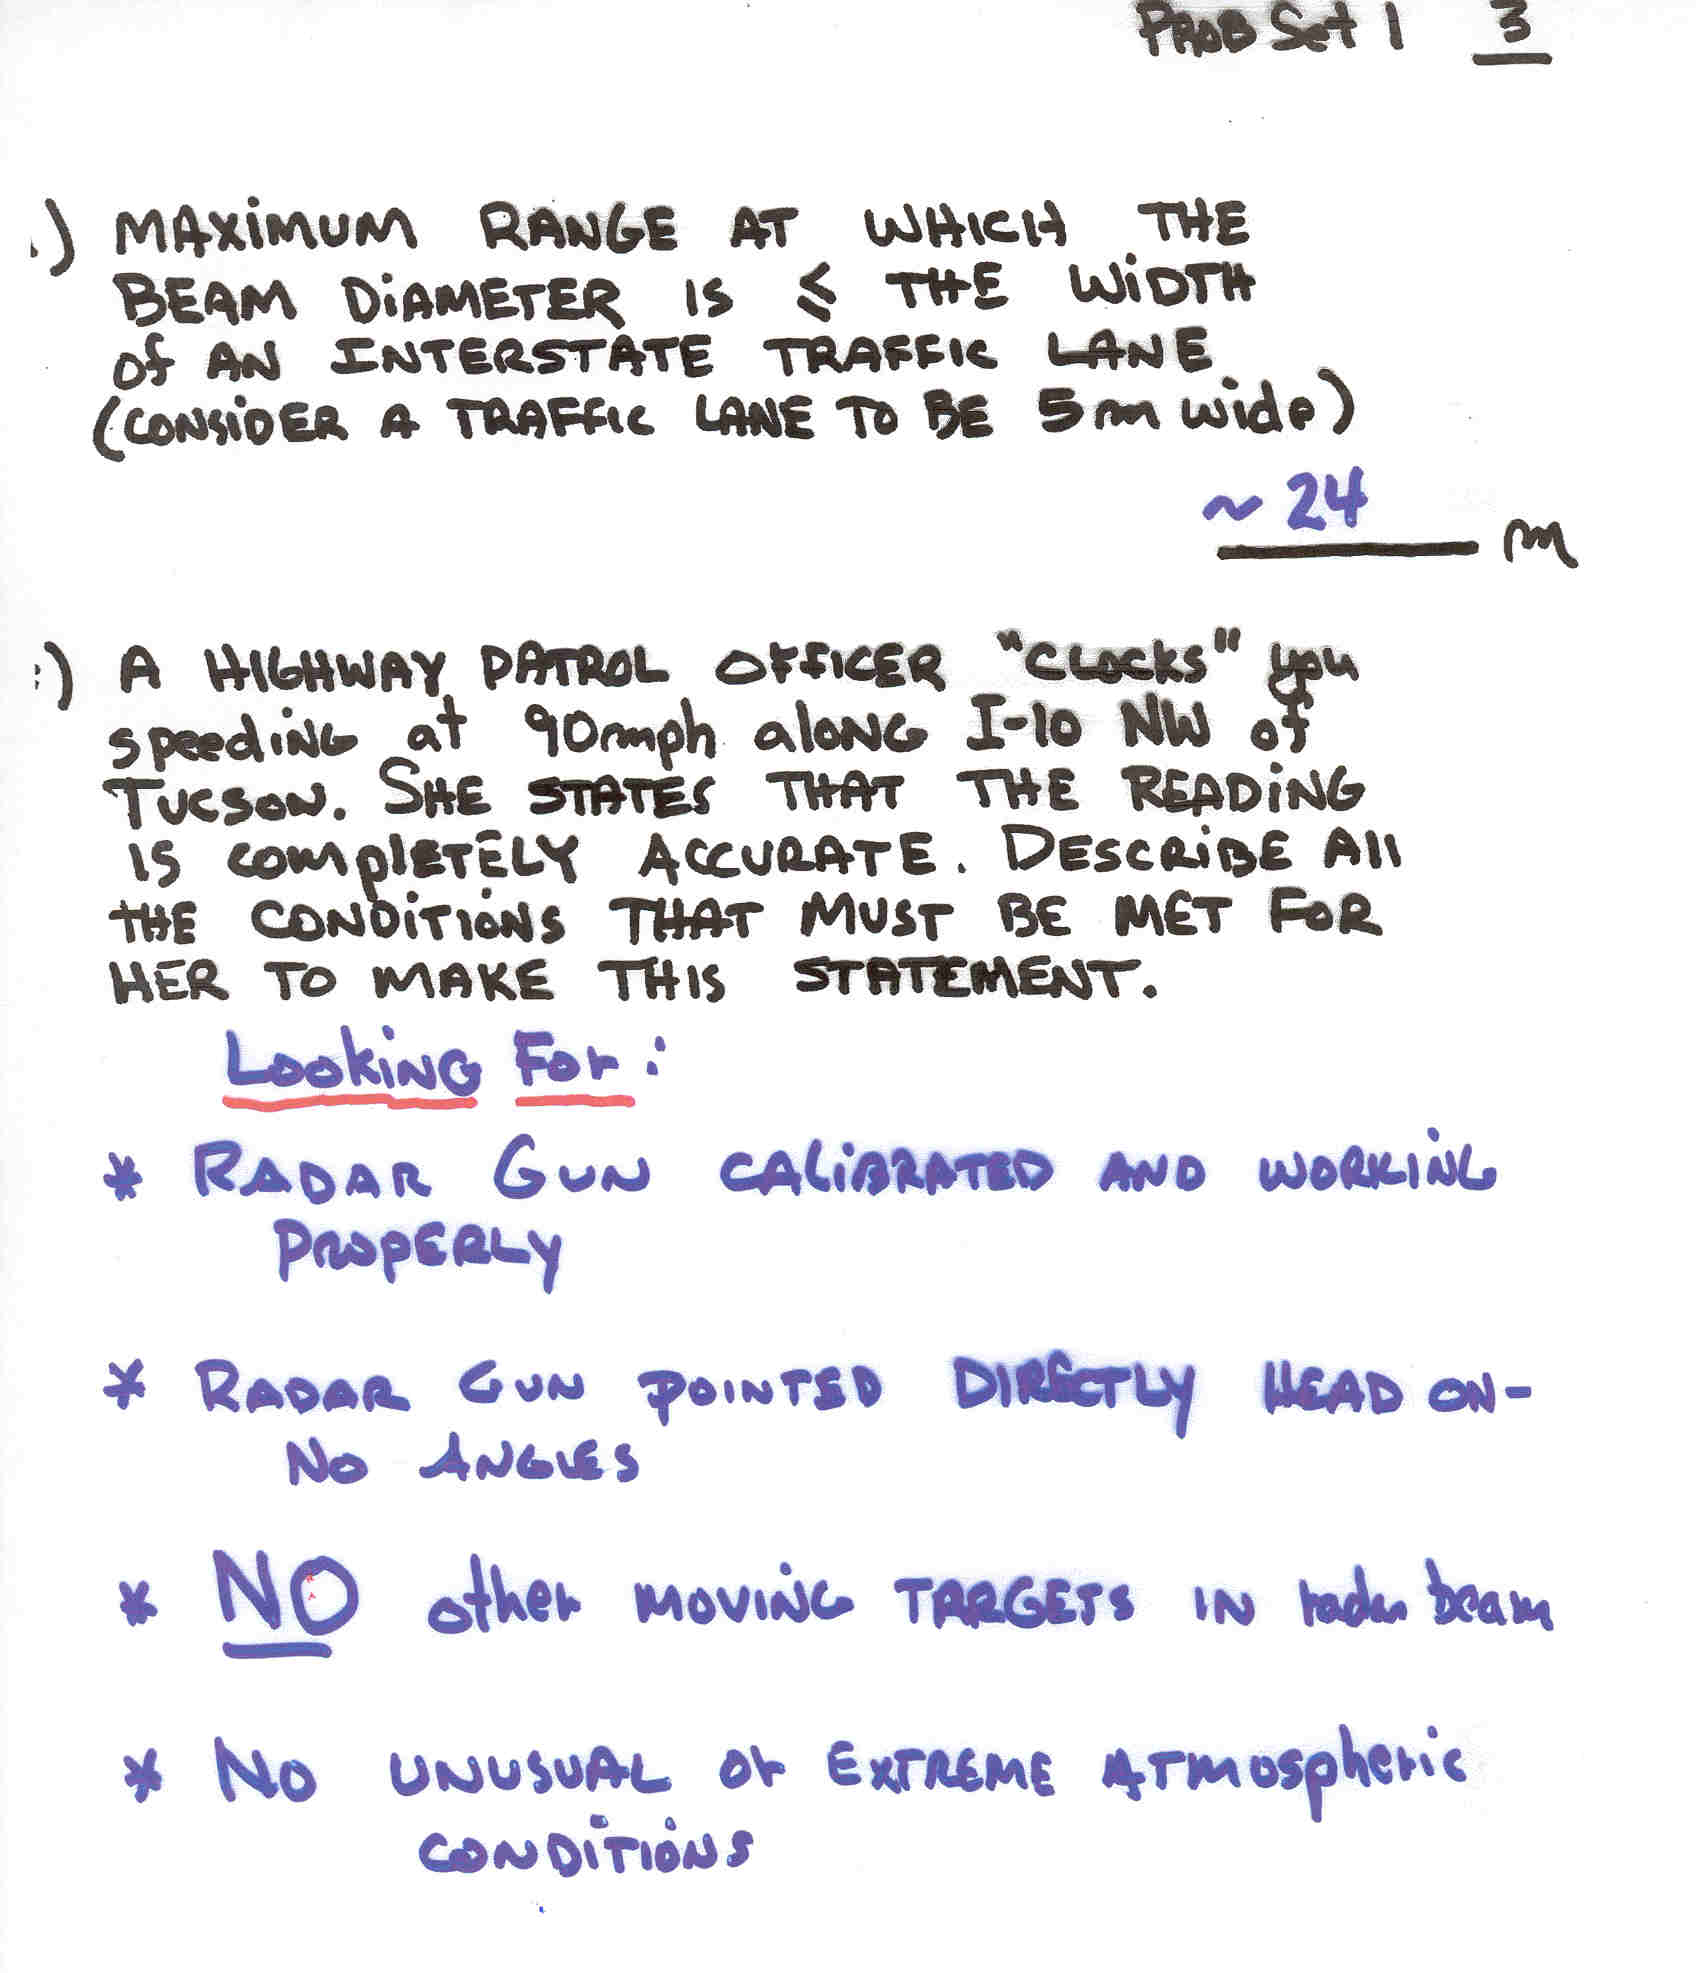 PROB Set 1 3
.) MAXIMUM RANGE AT WHICH THE
BEAM DIAMETER IS ≤ THE WIDTH
of AN INTERSTATE TRAFFIC LANE
(CONSIDER A TRAFFIC LANE TO BE 5m wide)
~ 24 m
:) A HIGHWAY PATROL OFFICER "CLOCKS" you
speeding at 90mph along I-10 NW of
TUCSON. SHE STATES THAT THE READING
IS COMPLETELY ACCURATE. DESCRIBE All
THE CONDITIONS THAT MUST BE MET FOR
HER TO MAKE THIS STATEMENT.
Looking For:
* RADAR GUN CALIBRATED AND WORKING
PROPERLY
* RADAR GUN POINTED DIRECTLY HEAD ON-
NO ANGLES
* NO other MOVING TARGETS IN radar beam
* NO UNUSUAL or EXTREME ATMospheric
CONDITIONS